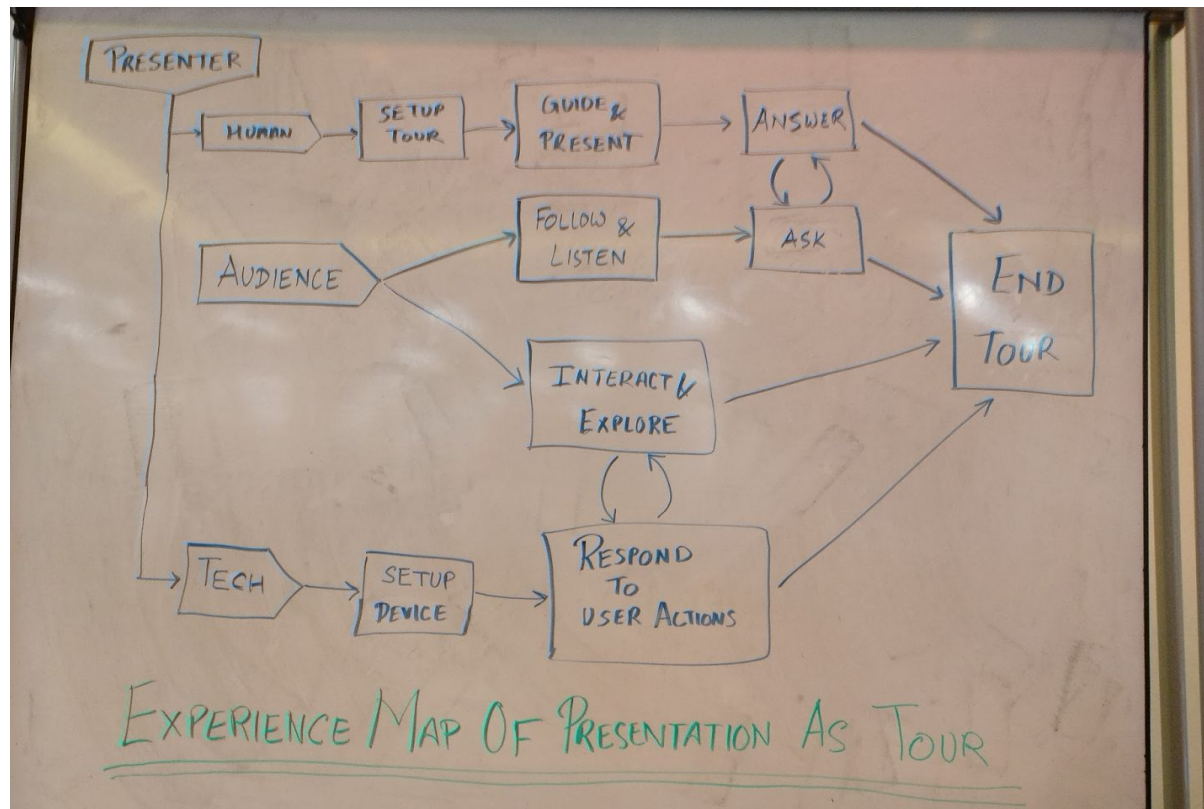 PRESENTER
HUMAN
SETUP
TOUR
GUIDE &
PRESENT
ANSWER
FOLLOW &
LISTEN
ASK
AUDIENCE
END
TOUR
INTERACT &
EXPLORE
TECH
SETUP
DEVICE
RESPOND
TO
USER ACTIONS
EXPERIENCE MAP OF PRESENTATION AS TOUR